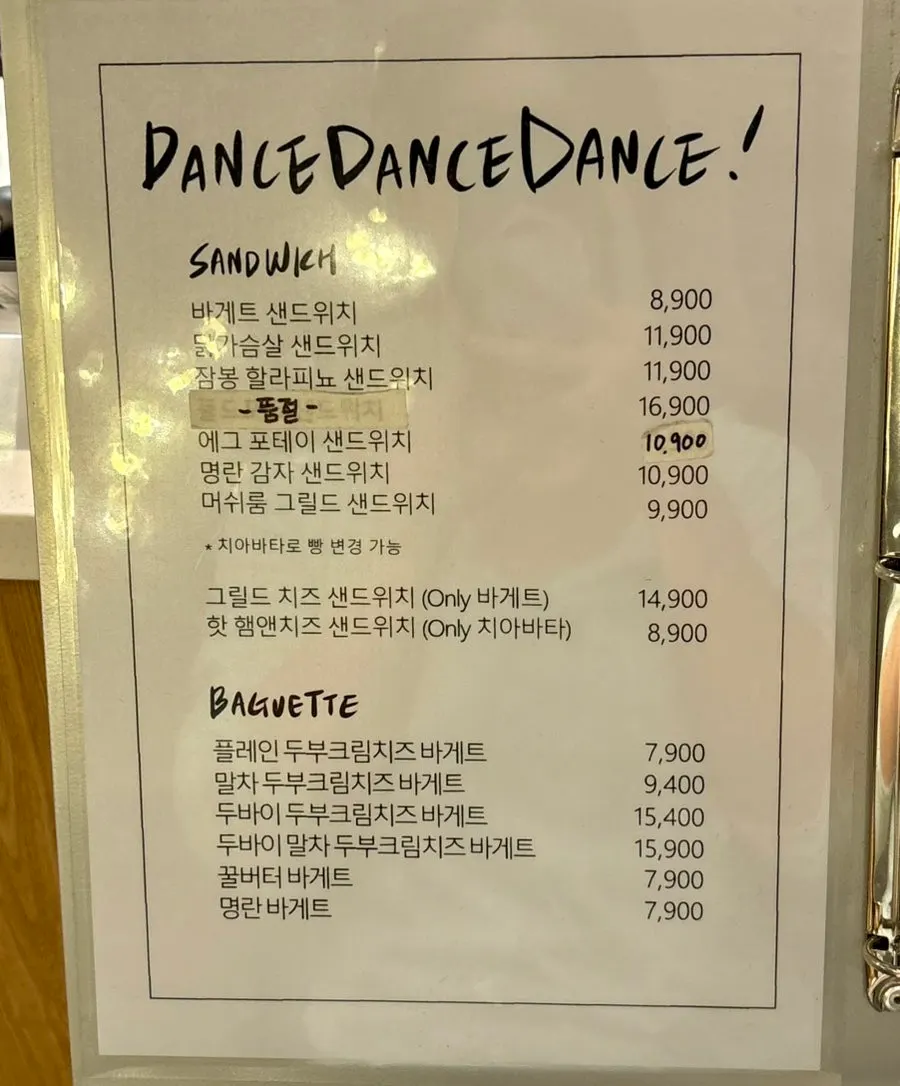 DANCE DANCE DANCE!
SANDWICH
바게트 샌드위치 8,900
닭가슴살 샌드위치 11,900
잠봉 할라피뇨 샌드위치 11,900
-품절- 16,900
에그 포테이 샌드위치 10,900
명란 감자 샌드위치 10,900
머쉬룸 그릴드 샌드위치 9,900
* 치아바타로 빵 변경 가능
그릴드 치즈 샌드위치 (Only 바게트) 14,900
핫 햄앤치즈 샌드위치 (Only 치아바타) 8,900
BAGUETTE
플레인 두부크림치즈 바게트 7,900
말차 두부크림치즈 바게트 9,400
두바이 두부크림치즈 바게트 15,400
두바이 말차 두부크림치즈 바게트 15,900
꿀버터 바게트 7,900
명란 바게트 7,900